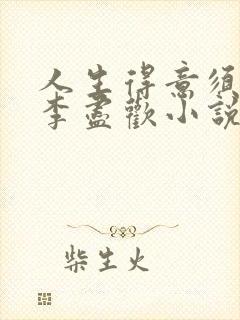 人生得意须
李盡歡小說
柴生火